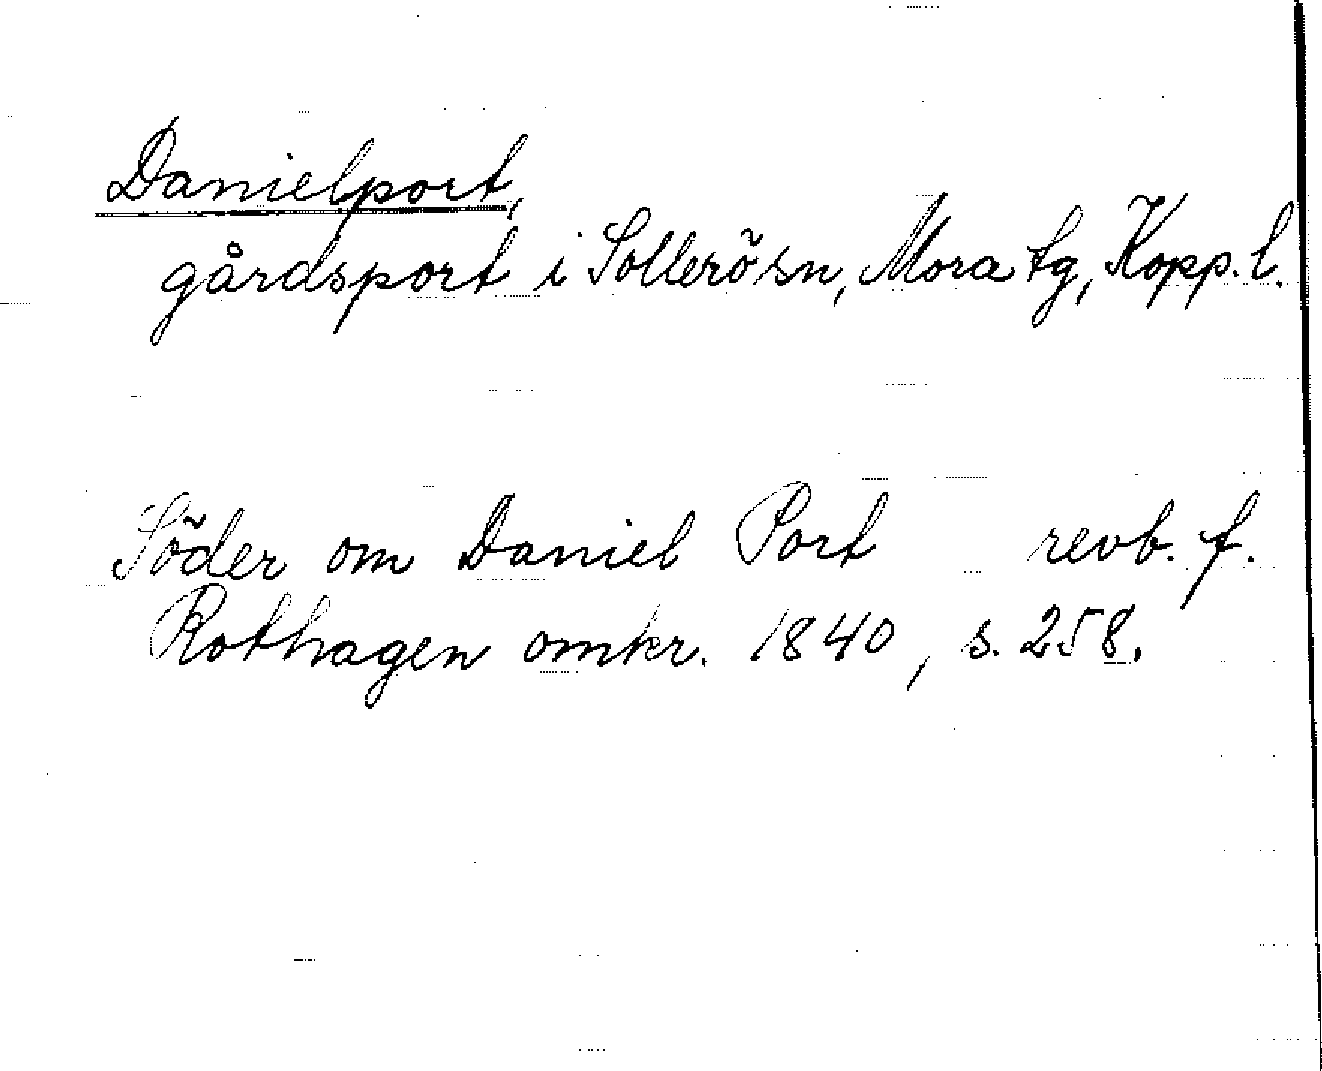 Danielport,
gårdsport i Sollerö sn, Mora tg, Kopp. l.
Söder om Daniel Port revb. f.
Rothagen omkr. 1840, s. 258.